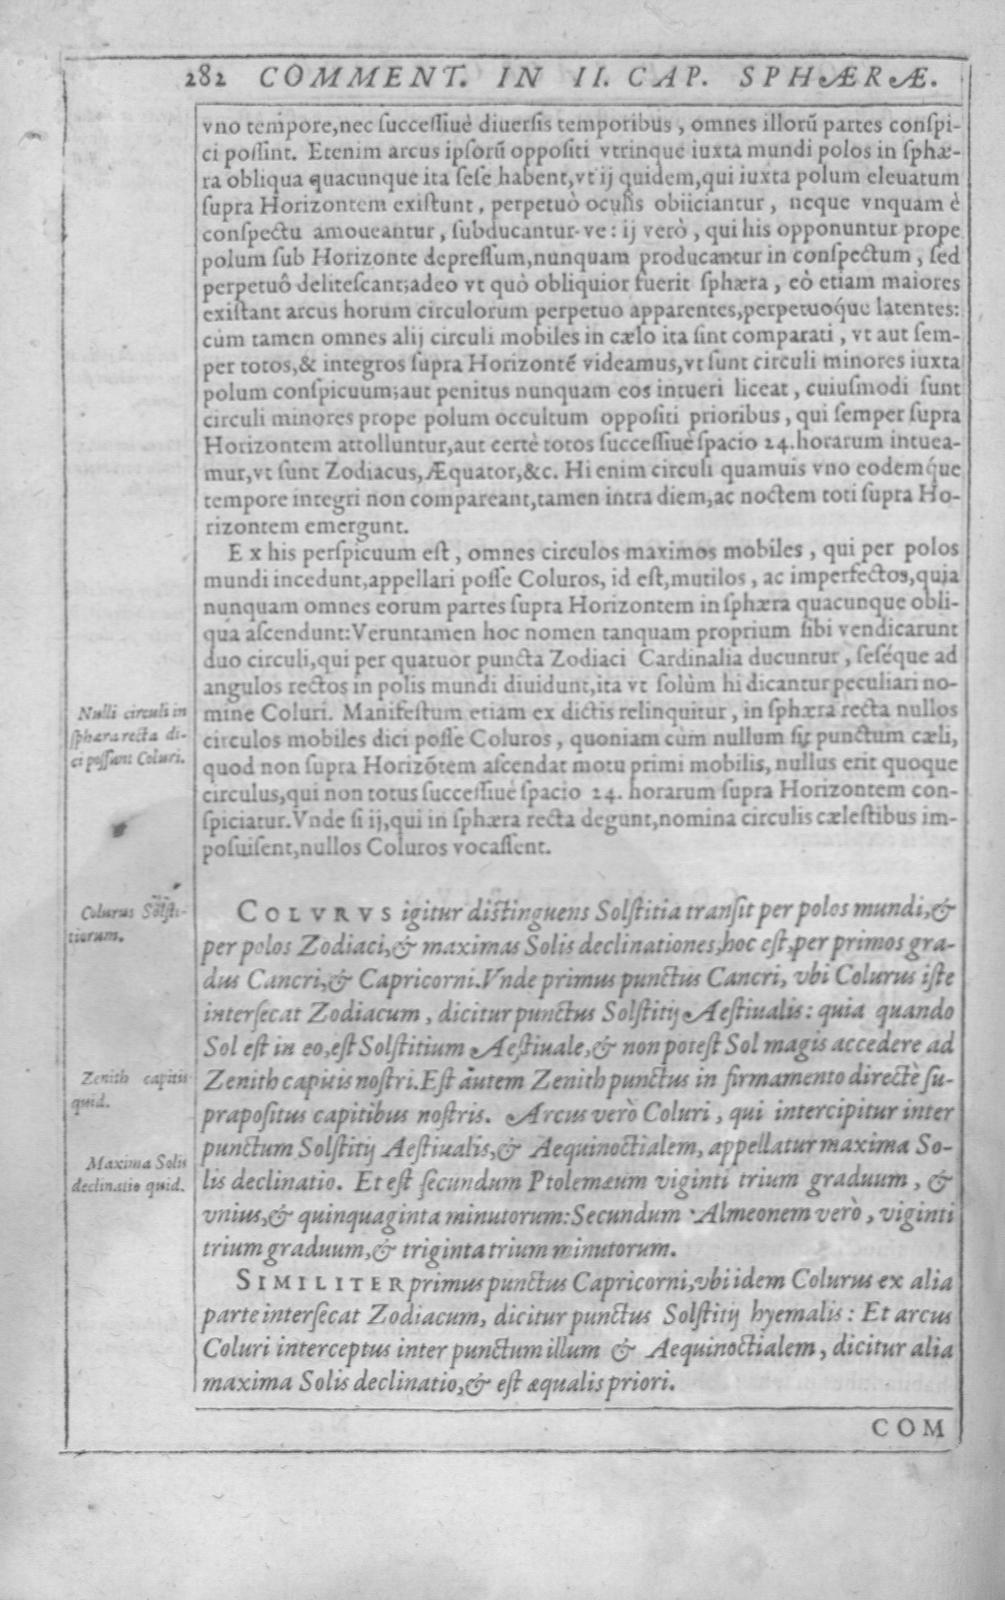 282 COMMENT. IN II. CAP. SPHÆRÆ.
vno tempore, nec ſucceſſiuè diuerſis temporibus, omnes illorũ partes conſpi-
ci poſſint. Etenim arcus ipſorũ oppoſiti vtrinque iuxta mundi polos in ſphæ-
ra obliqua quacunque ita ſeſe habent, vt ij quidem, qui iuxta polum eleuatum
ſupra Horizontem exiſtunt, perpetuò oculis obiiciantur, neque vnquam è
conſpectu amoueantur, ſubducantur-ve: ij verò, qui his opponuntur prope
polum ſub Horizonte depreſſum, nunquam producantur in conſpectum, ſed
perpetuô deliteſcant; adeo vt quò obliquior fuerit ſphæra, eò etiam maiores
exiſtant arcus horum circulorum perpetuo apparentes, perpetuoq́ue latentes:
cùm tamen omnes alij circuli mobiles in cælo ita ſint comparati, vt aut ſem-
per totos, & integros ſupra Horizontẽ videamus, vt ſunt circuli minores iuxta
polum conſpicuum; aut penitus nunquam eos intueri liceat, cuiuſmodi ſunt
circuli minores prope polum occultum oppoſiti prioribus, qui ſemper ſupra
Horizontem attolluntur, aut certè totos ſucceſſiuè ſpacio 24. horarum intuea-
mur, vt ſunt Zodiacus, Æquator, &c. Hi enim circuli quamuis vno eodemq́ue
tempore integri non compareant, tamen intra diem, ac noctem toti ſupra Ho-
rizontem emergunt.
Ex his perſpicuum eſt, omnes circulos maximos mobiles, qui per polos
mundi incedunt, appellari poſſe Coluros, id eſt, mutilos, ac imperfectos, quia
nunquam omnes eorum partes ſupra Horizontem in ſphæra quacunque obli-
qua aſcendunt: Veruntamen hoc nomen tanquam proprium ſibi vendicarunt
duo circuli, qui per quatuor puncta Zodiaci Cardinalia ducuntur, ſeſéque ad
angulos rectos in polis mundi diuidunt, ita vt ſolùm hi dicantur peculiari no-
mine Coluri. Manifeſtum etiam ex dictis relinquitur, in ſphæra recta nullos
circulos mobiles dici poſſe Coluros, quoniam cùm nullum ſit punctum cæli,
quod non ſupra Horizõtem aſcendat motu primi mobilis, nullus erit quoque
circulus, qui non totus ſucceſſiuè ſpacio 24. horarum ſupra Horizontem con-
ſpiciatur. Vnde ſi ij, qui in ſphæra recta degunt, nomina circulis cæleſtibus im-
poſuiſent, nullos Coluros vocaſſent.
Nulli circuli in
ſphæra recta di-
ci poſſunt Coluri.
COLVRVS igitur diſtinguens Solſtitia tranſit per polos mundi, &
per polos Zodiaci, & maximas Solis declinationes, hoc eſt, per primos gra-
dus Cancri, & Capricorni. Vnde primus punctus Cancri, vbi Colurus iſte
interſecat Zodiacum, dicitur punctus Solſtitij Aeſtiualis: quia quando
Sol eſt in eo, eſt Solſtitium Aeſtiuale, & non poteſt Sol magis accedere ad
Zenith capitis noſtri. Eſt autem Zenith punctus in firmamento directè ſu-
prapoſitus capitibus noſtris. Arcus verò Coluri, qui intercipitur inter
punctum Solſtitij Aeſtiualis, & Aequinoctialem, appellatur maxima So-
lis declinatio. Et eſt ſecundum Ptolemæum viginti trium graduum, &
vnius, & quinquaginta minutorum: Secundum Almeonem verò, viginti
trium graduum, & triginta trium minutorum.
Colurus Solſti-
tiorum.
Zenith capitis
quid.
Maxima Solis
declinatio quid.
SIMILITER primus punctus Capricorni, vbi idem Colurus ex alia
parte interſecat Zodiacum, dicitur punctus Solſtitij hyemalis: Et arcus
Coluri interceptus inter punctum illum & Aequinoctialem, dicitur alia
maxima Solis declinatio, & eſt æqualis priori.
COM